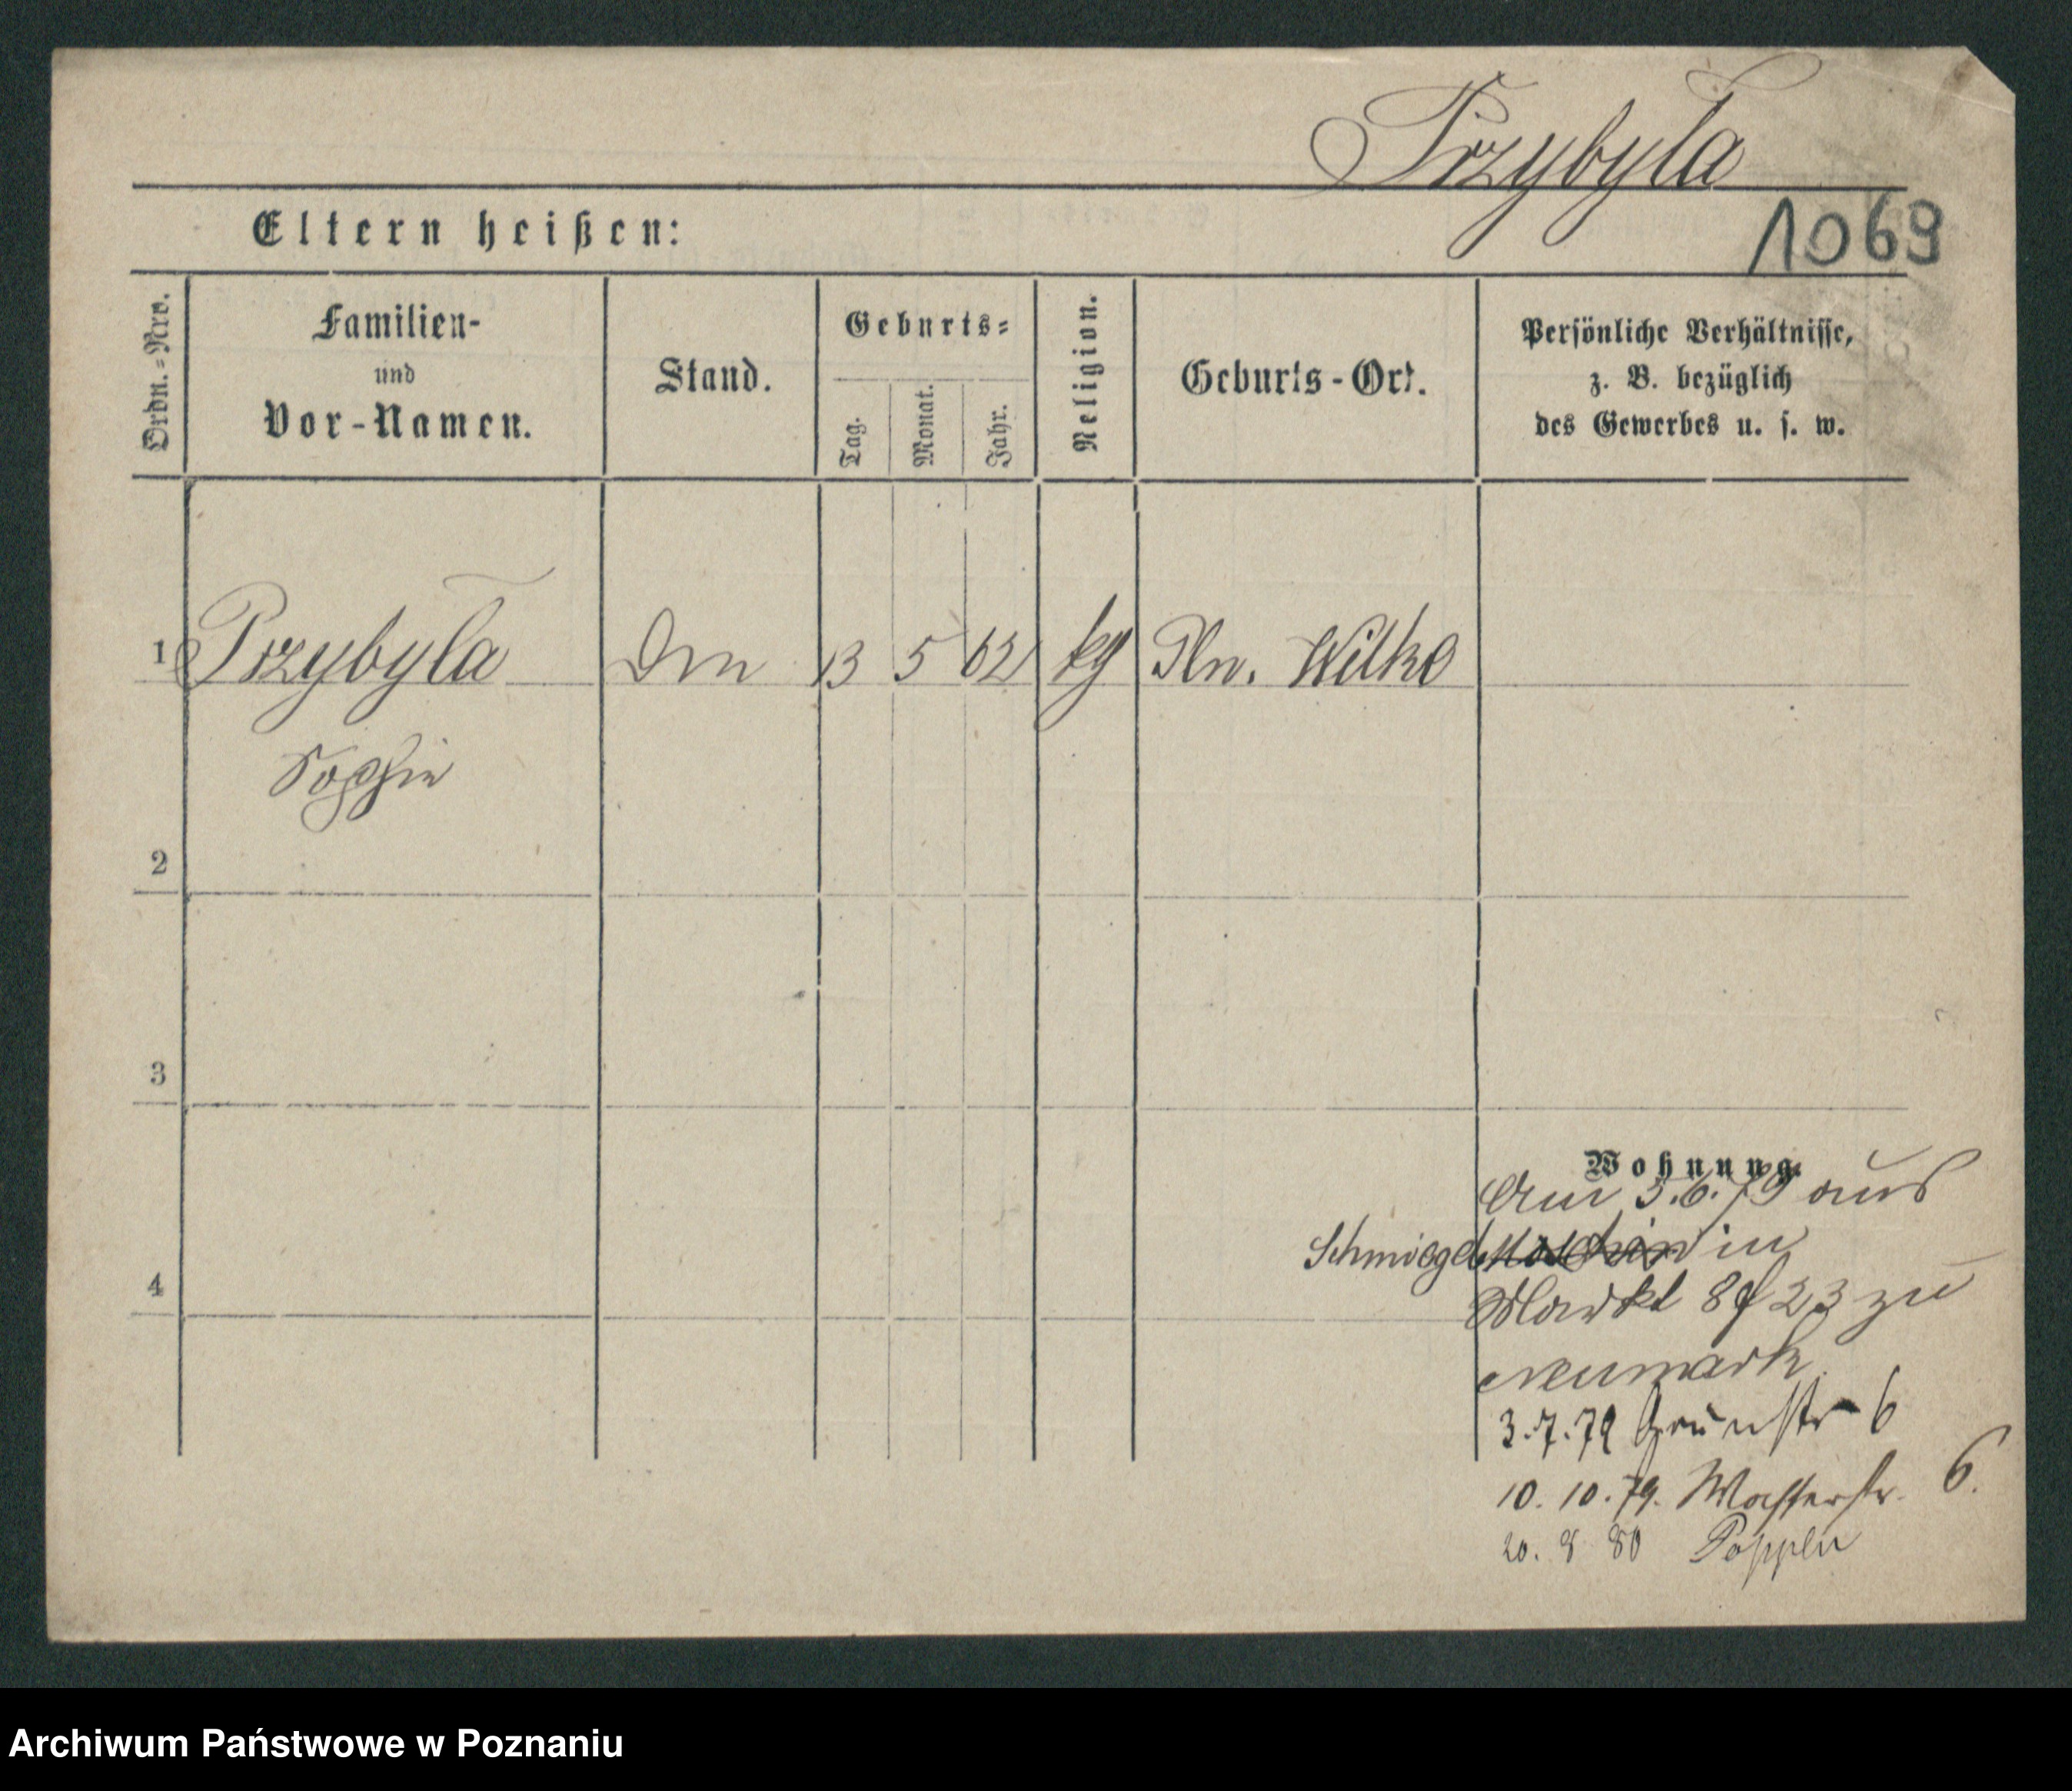 Przybyla
1069
Eltern heißen:
Ordn.-Nro.
Familien-
und
Vor-Namen.
Stand.
Geburts-
Tag.
Monat.
Jahr.
Religion.
Geburts-Ort.
Persönliche Verhältnisse,
z. B. bezüglich
des Gewerbes u. s. w.
1 Przybyla 13 5 62 Wilke
Sophie
2
3
4
Wohnung.
5.6.79 aus
Schmiegel in
Markt 89 23 zu
Neumark
3.7.79 Graustr 6
10. 10. 79. Wasserstr. 6.
20. 8 80
Archiwum Państwowe w Poznaniu